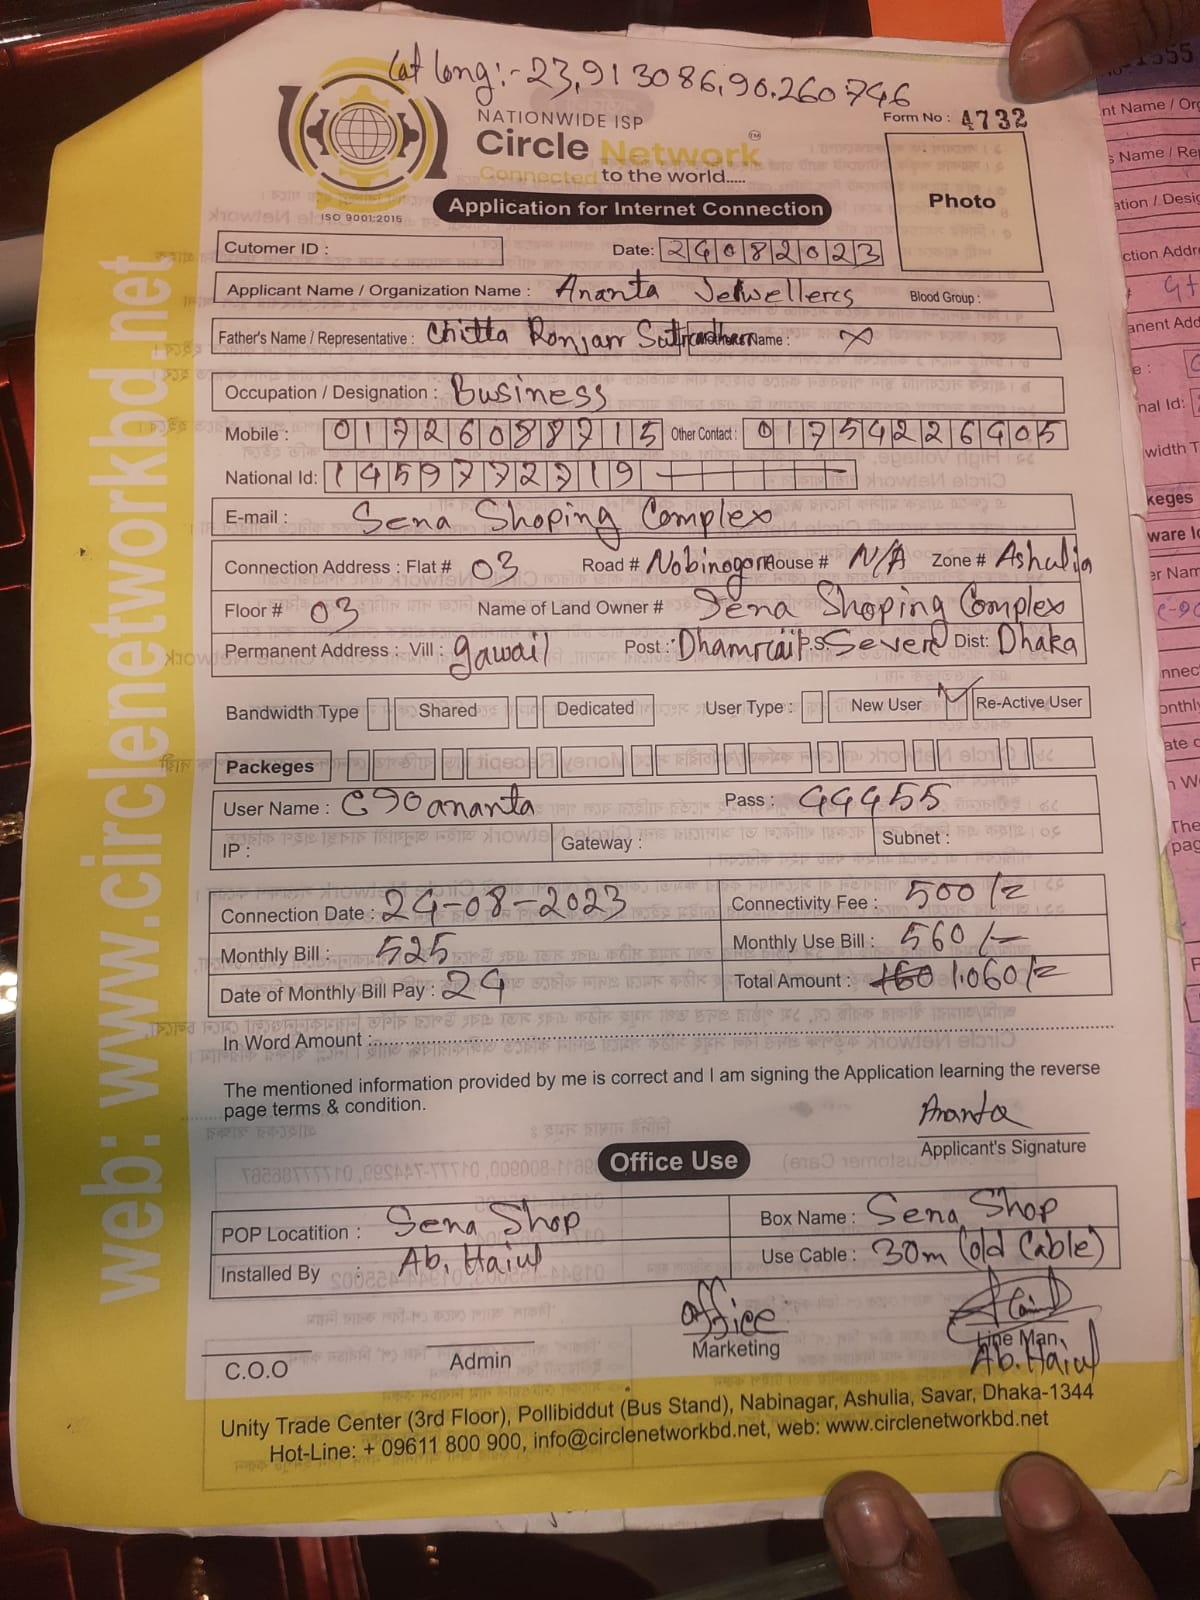 Lat long:- 23,913086,90.260746
NATIONWIDE ISP
Form No : 4732
Circle Network™
Connected to the world.....
ISO 9001:2015
Application for Internet Connection
Photo
Cutomer ID :
Date: 24082023
Applicant Name / Organization Name : Ananta Jewellers
Blood Group :
Father's Name / Representative : Chitta Ronjan Name : X
Occupation / Designation : Business
Mobile : 01726088715 Other Contact : 01754226405
National Id: 1459772719
E-mail : Sena Shoping Complex
Connection Address : Flat # 03 Road # Nobinogor House # N/A Zone # Ashulia
Floor # 03 Name of Land Owner # Sena Shoping Complex
Permanent Address : Vill : gawail Post : Dhamrai P.S: Dist: Dhaka
Bandwidth Type Shared Dedicated User Type : New User Re-Active User
Packeges
User Name : C90ananta Pass : 444455
IP : Gateway : Subnet :
Connection Date : 24-08-2023 Connectivity Fee : 500/=
Monthly Bill : 525 Monthly Use Bill : 560/-
Date of Monthly Bill Pay : 24 Total Amount : 1.060/=
In Word Amount :
The mentioned information provided by me is correct and I am signing the Application learning the reverse
page terms & condition.
Ananta
Applicant's Signature
Office Use
POP Locatition : Sena Shop Box Name : Sena Shop
Installed By : Ab. Haiul Use Cable : 30m (old Cable)
office
C.O.O Admin Marketing Line Man
Ab. Haiul
Unity Trade Center (3rd Floor), Pollibiddut (Bus Stand), Nabinagar, Ashulia, Savar, Dhaka-1344
Hot-Line: + 09611 800 900, info@circlenetworkbd.net, web: www.circlenetworkbd.net
web: www.circlenetworkbd.net